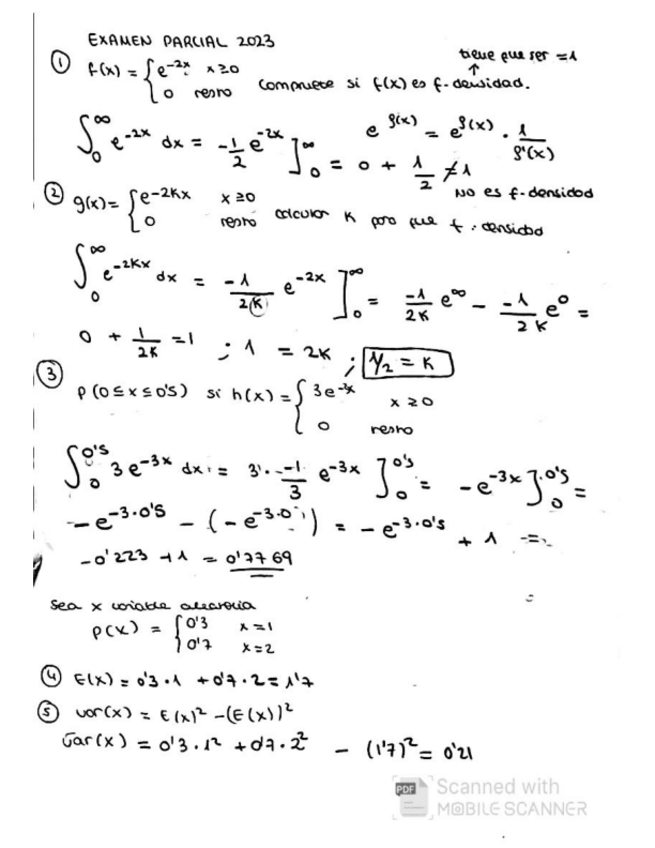 EXAMEN PARCIAL 2023
tiene que ser =1
① f(x) = { e^-2x x≥0
0 resto compruebe si f(x) es f-densidad.
∫₀^∞ e^-2x dx = -1/2 e^-2x ]₀^∞ = 0 + 1/2 ≠ 1
e^g(x) = e^g(x) · 1/g'(x)
NO es f-densidad
② g(x) = { e-2Kx x≥0
0 resto calcular K para que f. densidad
∫₀^∞ e^-2Kx dx = -1/2K e^-2x ]₀^∞ = -1/2K e^∞ - -1/2K e^0 =
0 + 1/2K = 1 ; 1 = 2K ; 1/2 = K
③ P(0≤x≤0'5) si h(x) = { 3e^-3x x≥0
0 resto
∫₀^0'5 3e^-3x dx = 3·-1/3 e^-3x ]₀^0'5 = -e^-3x ]₀^0'5 =
-e^-3·0'5 - (-e^-3·0) = -e^-3·0'5 + 1 =
-0'223 +1 = 0'7769
Sea x variable aleatoria
P(x) = { 0'3 x=1
0'7 x=2
④ E(x) = 0'3·1 + 0'7·2 = 1'7
⑤ var(x) = E(x)² - (E(x))²
Var(x) = 0'3·1² + 0'7·2² - (1'7)² = 0'21
PDF Scanned with
MOBILE SCANNER